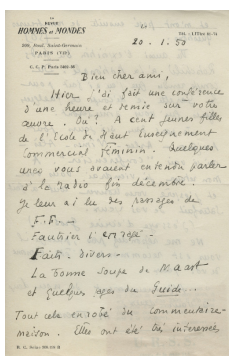 LA
REVUE
HOMMES et MONDES
TÉL. : LITtré
Boul. Saint-Germain
PARIS
C. C. P. Paris
20.1.50
Bien cher ami,
Hier j'ai fait une conférence
d'une heure et demie sur votre
œuvre. Où? A cent jeunes filles
de l'Ecole de Haut Enseignement
Commercial féminin. Quelques
unes vous avaient entendu parler
à la radio fin décembre.
Je leur ai lu des passages de
F.F. -
Fautrier l'enragé -
Faits - divers -
La bonne soupe de Maast
et quelques pages du Guide...
Tout cela enrobé du commentaire-
maison. Elles ont été très intéressées
R. C. Seine